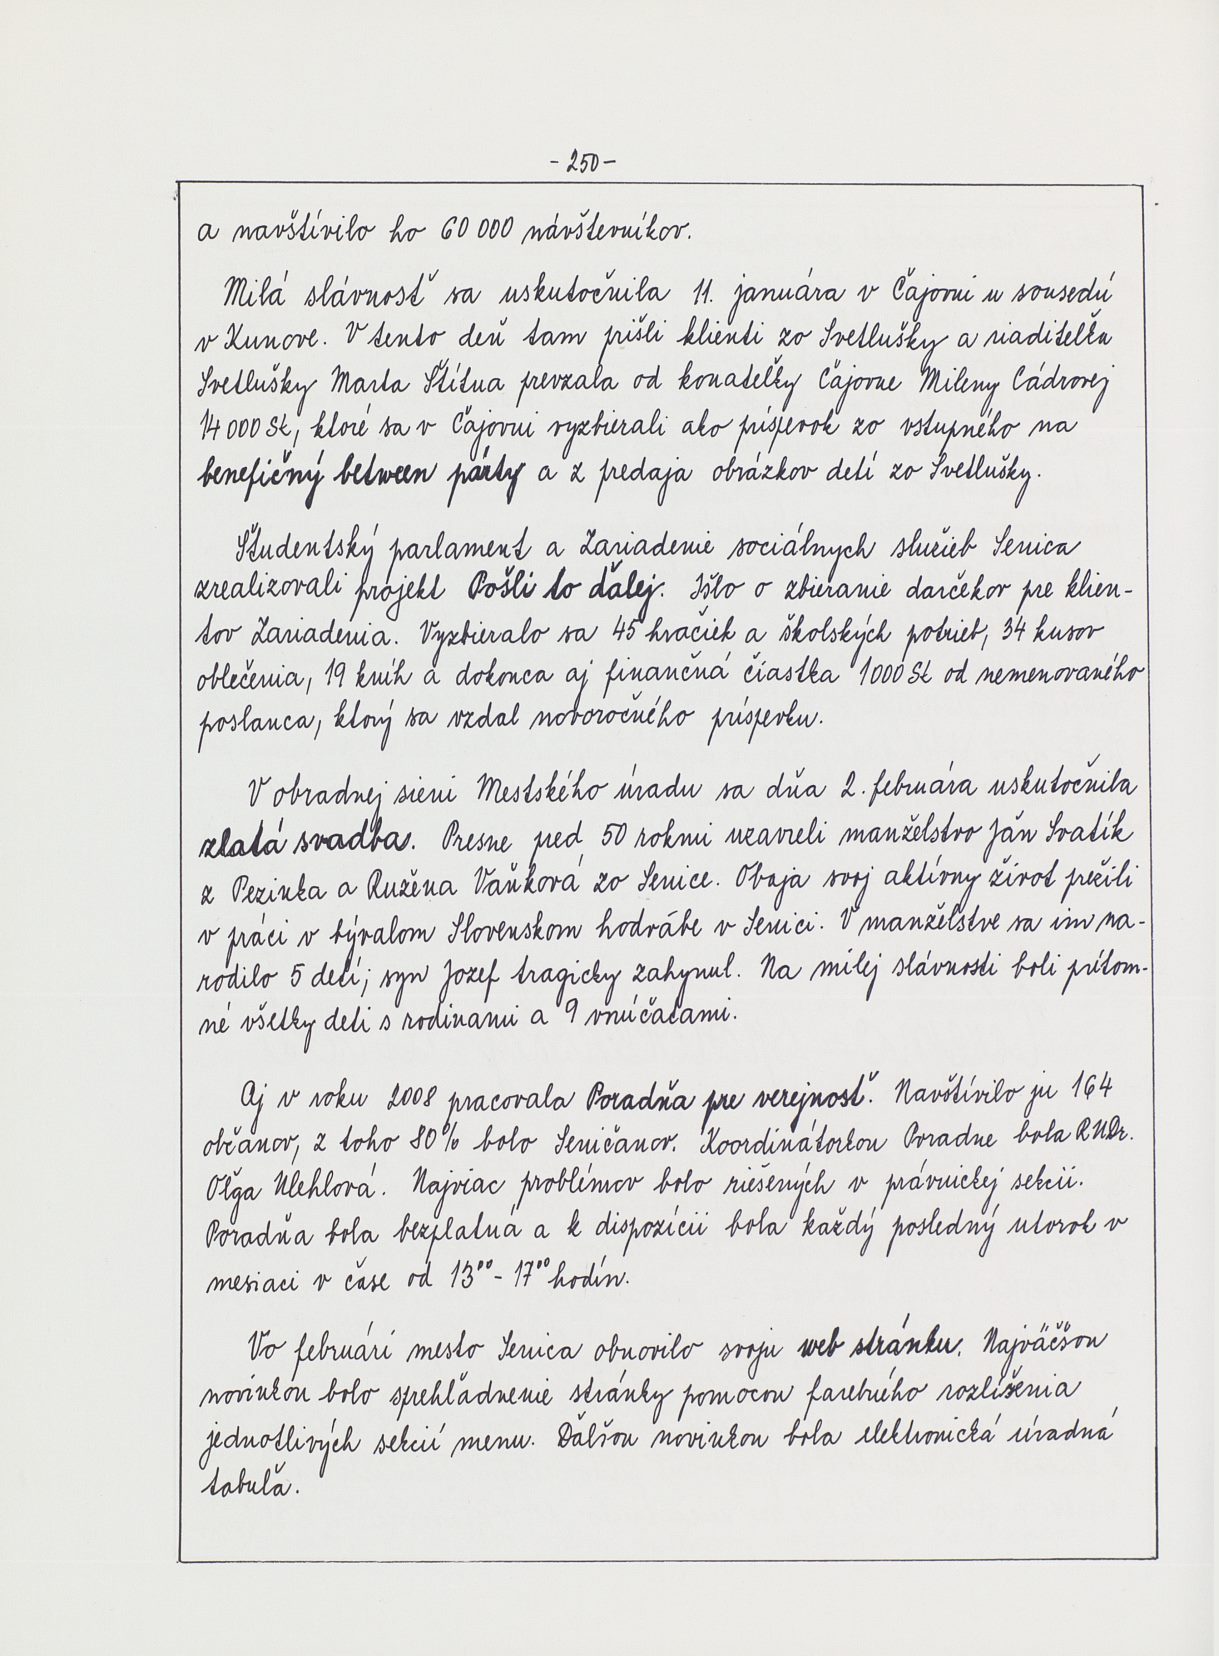 -250-
a navštívilo ho 60 000 návštevníkov.
Milá slávnosť sa uskutočnila 11. januára v Čajovni u sousedú
v Kunove. V tento deň tam prišli klienti zo Svetlušky a riaditeľka
Svetlušky Marta Štítna prevzala od konateľky Čajovne Mileny Cádrovej
14 000 Sk, ktoré sa v Čajovni vyzbierali ako príspevok zo vstupného na
benefičný between párty a z predaja obrázkov detí zo Svetlušky.
Študentský parlament a Zariadenie sociálnych služieb Senica
zrealizovali projekt Pošli to ďalej. Išlo o zbieranie darčekov pre klien-
tov Zariadenia. Vyzbieralo sa 45 hračiek a školských potrieb, 34 kusov
oblečenia, 19 kníh a dokonca aj finančná čiastka 1000 Sk od nemenovaného
poslanca, ktorý sa vzdal novoročného príspevku.
V obradnej sieni Mestského úradu sa dňa 2. februára uskutočnila
zlatá svadba. Presne pred 50 rokmi uzavreli manželstvo Ján Svatík
z Pezinka a Ružena Vaňková zo Senice. Obaja svoj aktívny život prežili
v práci v bývalom Slovenskom hodvábe v Senici. V manželstve sa im na-
rodilo 5 detí; syn Jozef tragicky zahynul. Na milej slávnosti boli prítom-
né všetky deti s rodinami a 9 vnúčatami.
Aj v roku 2008 pracovala Poradňa pre verejnosť. Navštívilo ju 164
občanov, z toho 80% bolo Seničanov. Koordinátorkou Poradne bola RNDr.
Oľga Ulehlová. Najviac problémov bolo riešených v právnickej sekcii.
Poradňa bola bezplatná a k dispozícii bola každý posledný utorok v
mesiaci v čase od 13⁰⁰-17⁰⁰ hodín.
Vo februári mesto Senica obnovilo svoju web stránku. Najväčšou
novinkou bolo sprehľadnenie stránky pomocou farebného rozlíšenia
jednotlivých sekcií menu. Ďalšou novinkou bola elektronická úradná
tabuľa.